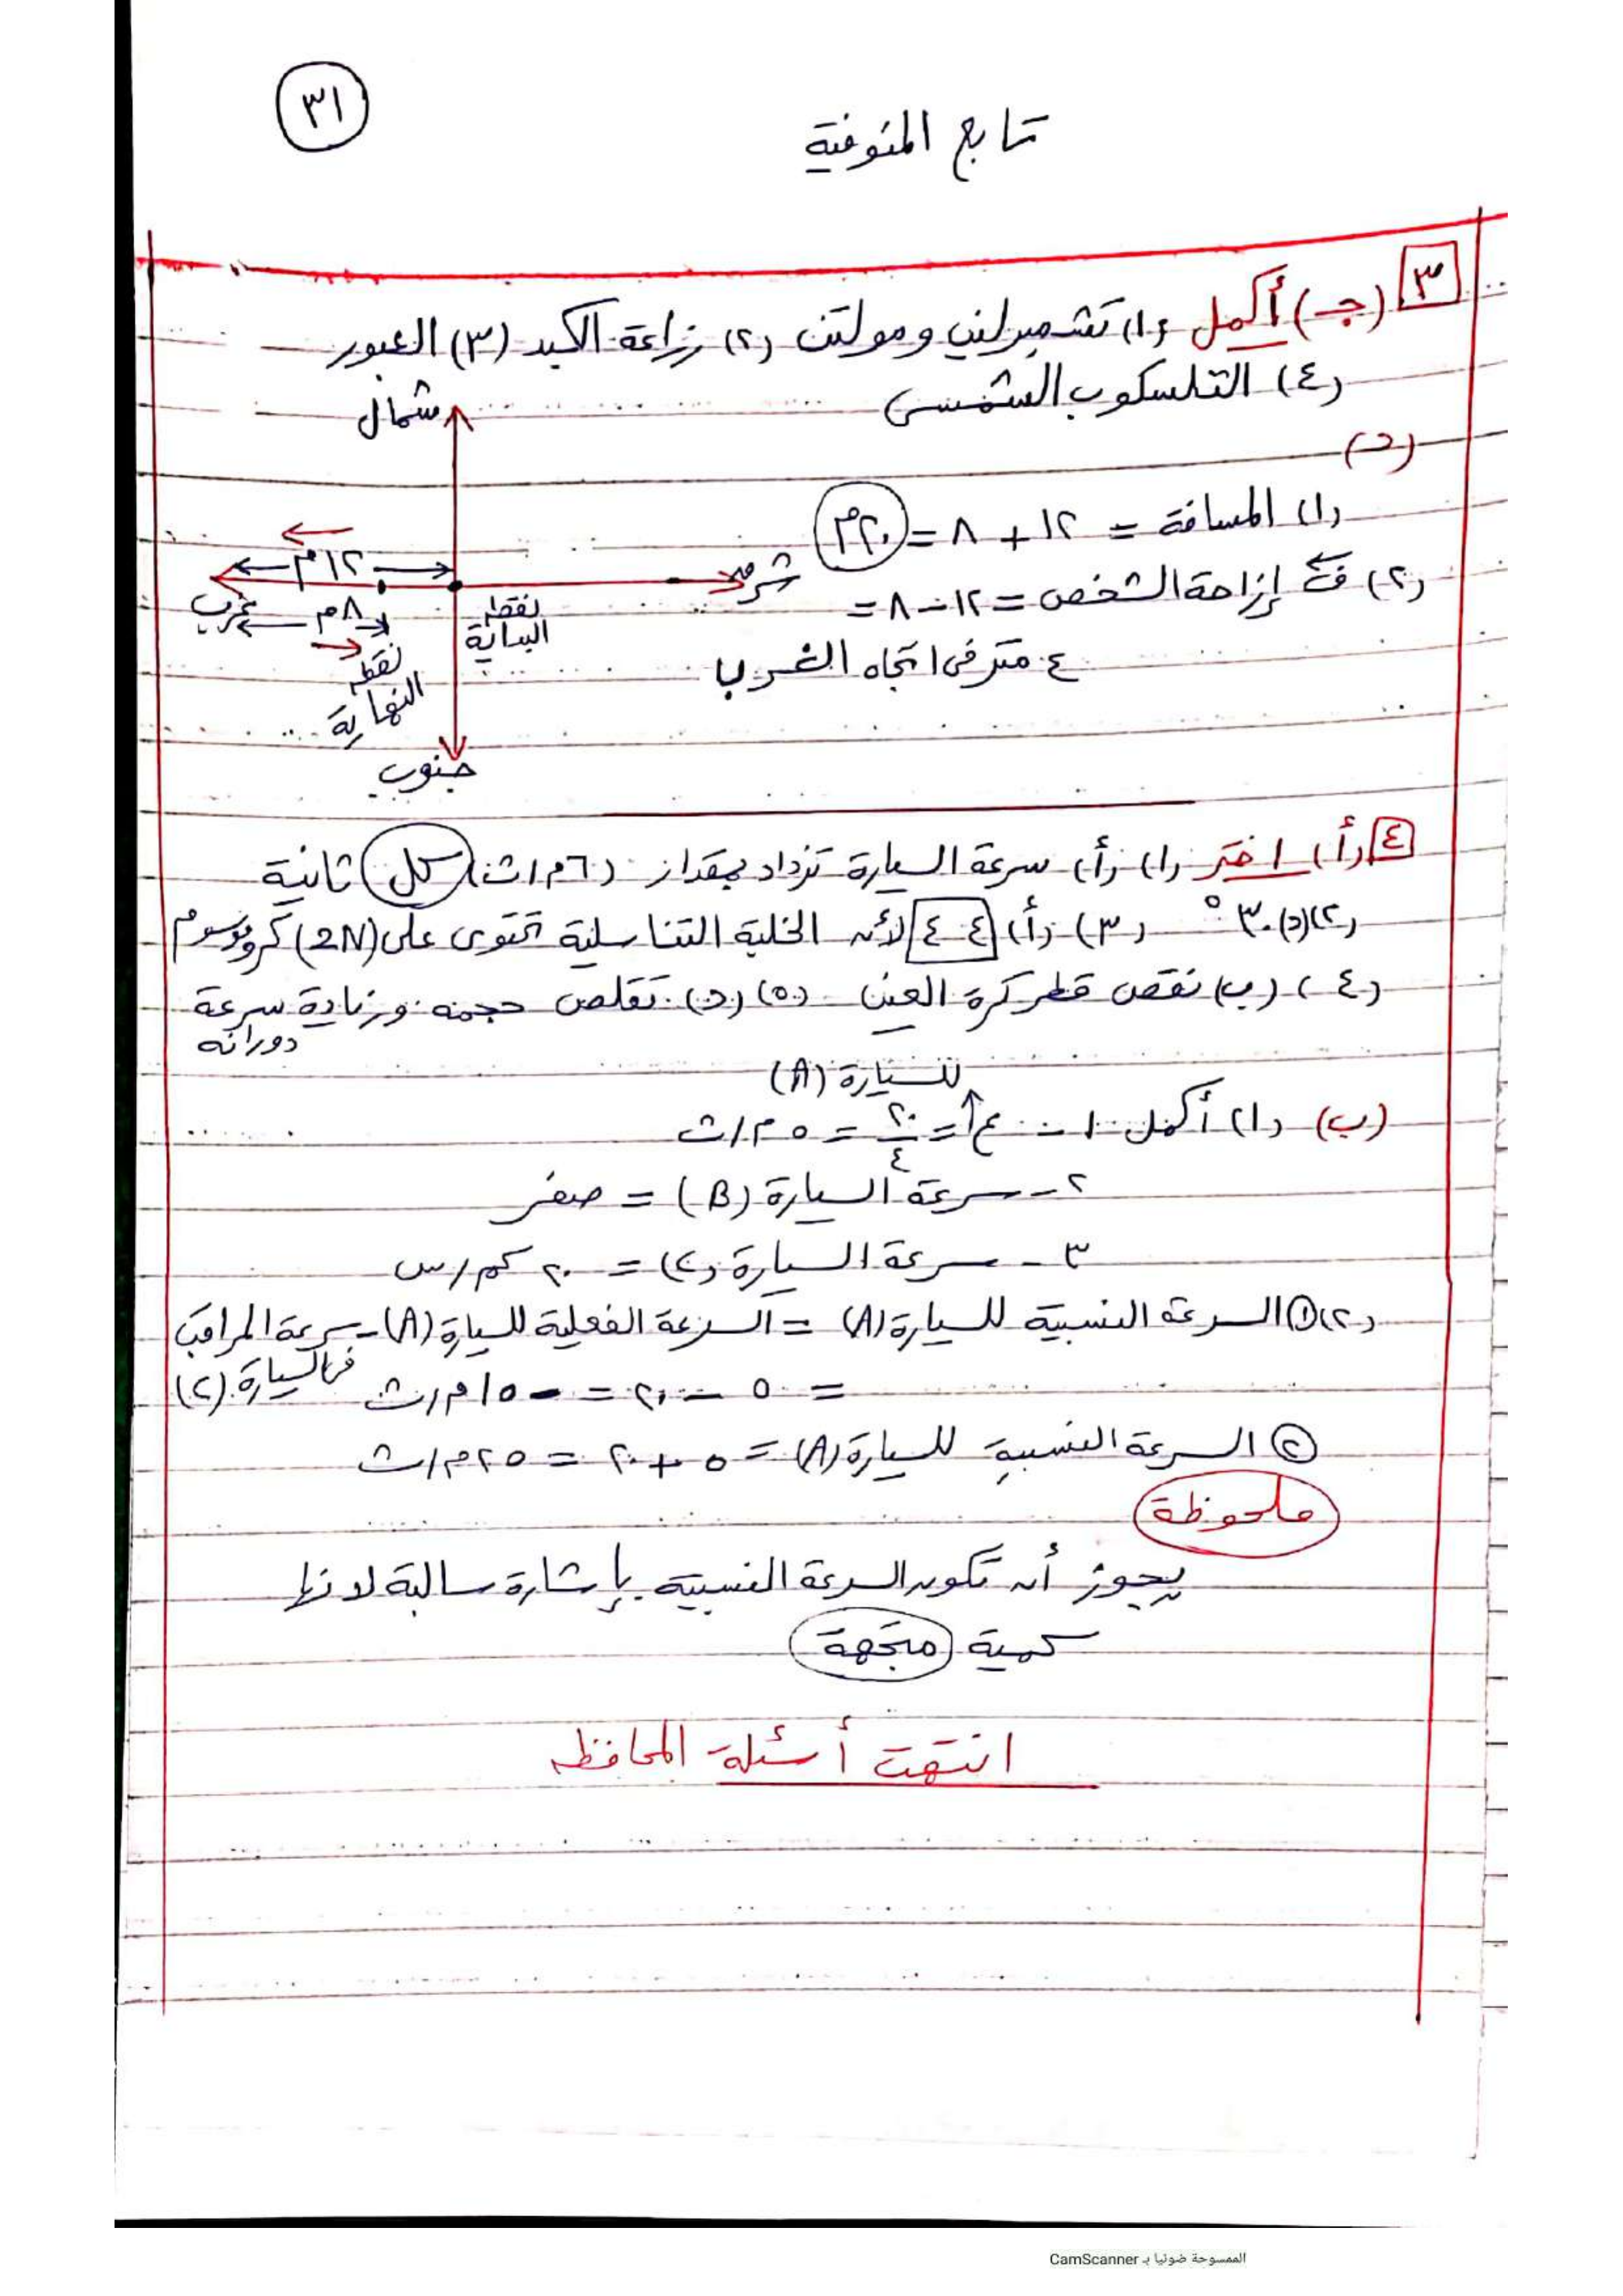 ٣١
تابع المنوفية
٣ (جـ) أكمل (١) تشمبرلين ومولتن (٢) زراعة الكبد (٣) العبور
(٤) التلسكوب الشمسى
(د)
(١) المسافة = ١٢ + ٨ = ٢٠م
(٢) إزاحة الشخص = ١٢ - ٨ =
٤ متر فى اتجاه الغرب
شمال
١٢م
شرق
غرب
٨م
نقطة البداية
نقطة النهاية
جنوب
٤ (أ) اختر (١) (أ) سرعة السيارة تزداد بمقدار (٦م/ث) كل ثانية
(٢) (د) ٣٠° (٣) (أ) ٤٤ لأن الخلية التناسلية تحتوى على (2N) كروموسوم
(٤) (ب) نقص قطر كرة العين (٥) (د) تقلص حجمه وزيادة سرعة
دورانه
للسيارة (A)
(ب) (١) أكمل ١ - ع = ٢٠/٤ = ٥ م/ث
٢ - سرعة السيارة (B) = صفر
٣ - سرعة السيارة (C) = ٢٠ كم/س
(٢) ① السرعة النسبية للسيارة (A) = السرعة الفعلية للسيارة (A) - سرعة المراقب
فى السيارة (C)
= ٥ - ٢٠ = - ١٥ م/ث
② السرعة النسبية للسيارة (A) = ٥ + ٢٠ = ٢٥ م/ث
ملحوظة
يجوز أن تكون السرعة النسبية بإشارة سالبة لانها
كمية متجهة
انتهت أسئلة المحافظه
الممسوحة ضوئيا بـ CamScanner